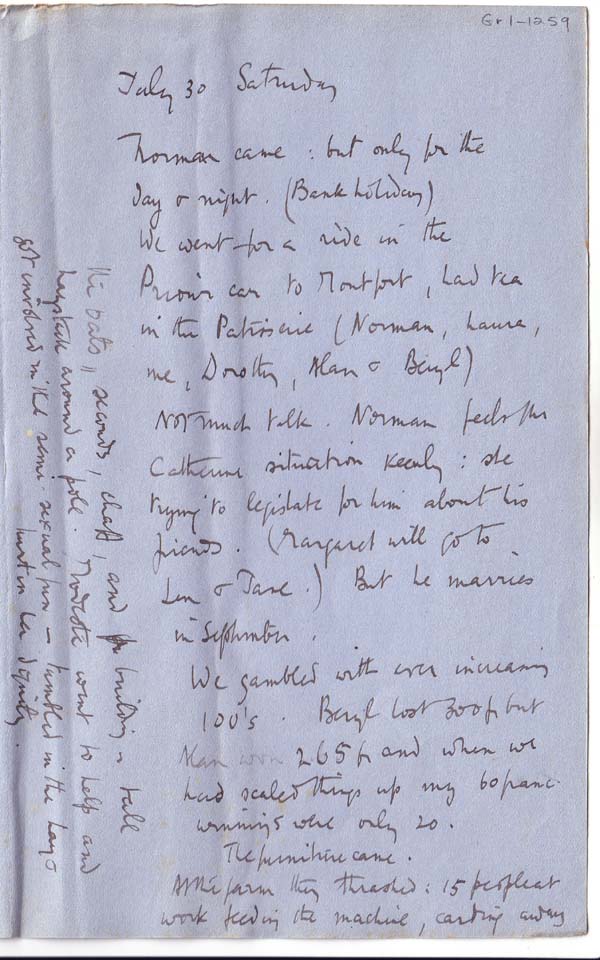 Gr1-1259
July 30 Saturday
Norman came : but only for the
day & night. (Bank holiday)
We went for a ride in the
Prior's car to Montfort, had tea
in the Patisserie (Norman, Laura,
me, Dorothy, Alan & Beryl)
Not much talk. Norman feels the
Catherine situation keenly : she
trying to legislate for him about his
friends. (Margaret will go to
Len & Jane.) But he marries
in September.
We gambled with ever increasing
100's. Beryl lost 300 fr but
Alan won 265 fr and when we
had scaled things up my 60 franc
winnings were only 20.
The furniture came.
At the farm they thrashed : 15 people at
work feeding the machine, carting away
the oats, seconds, chaff, and building a tall
haystack around a pole. Modesta went to help and
got involved in the semi-sexual fun — tumbled in the hay &
hurt in her dignity.